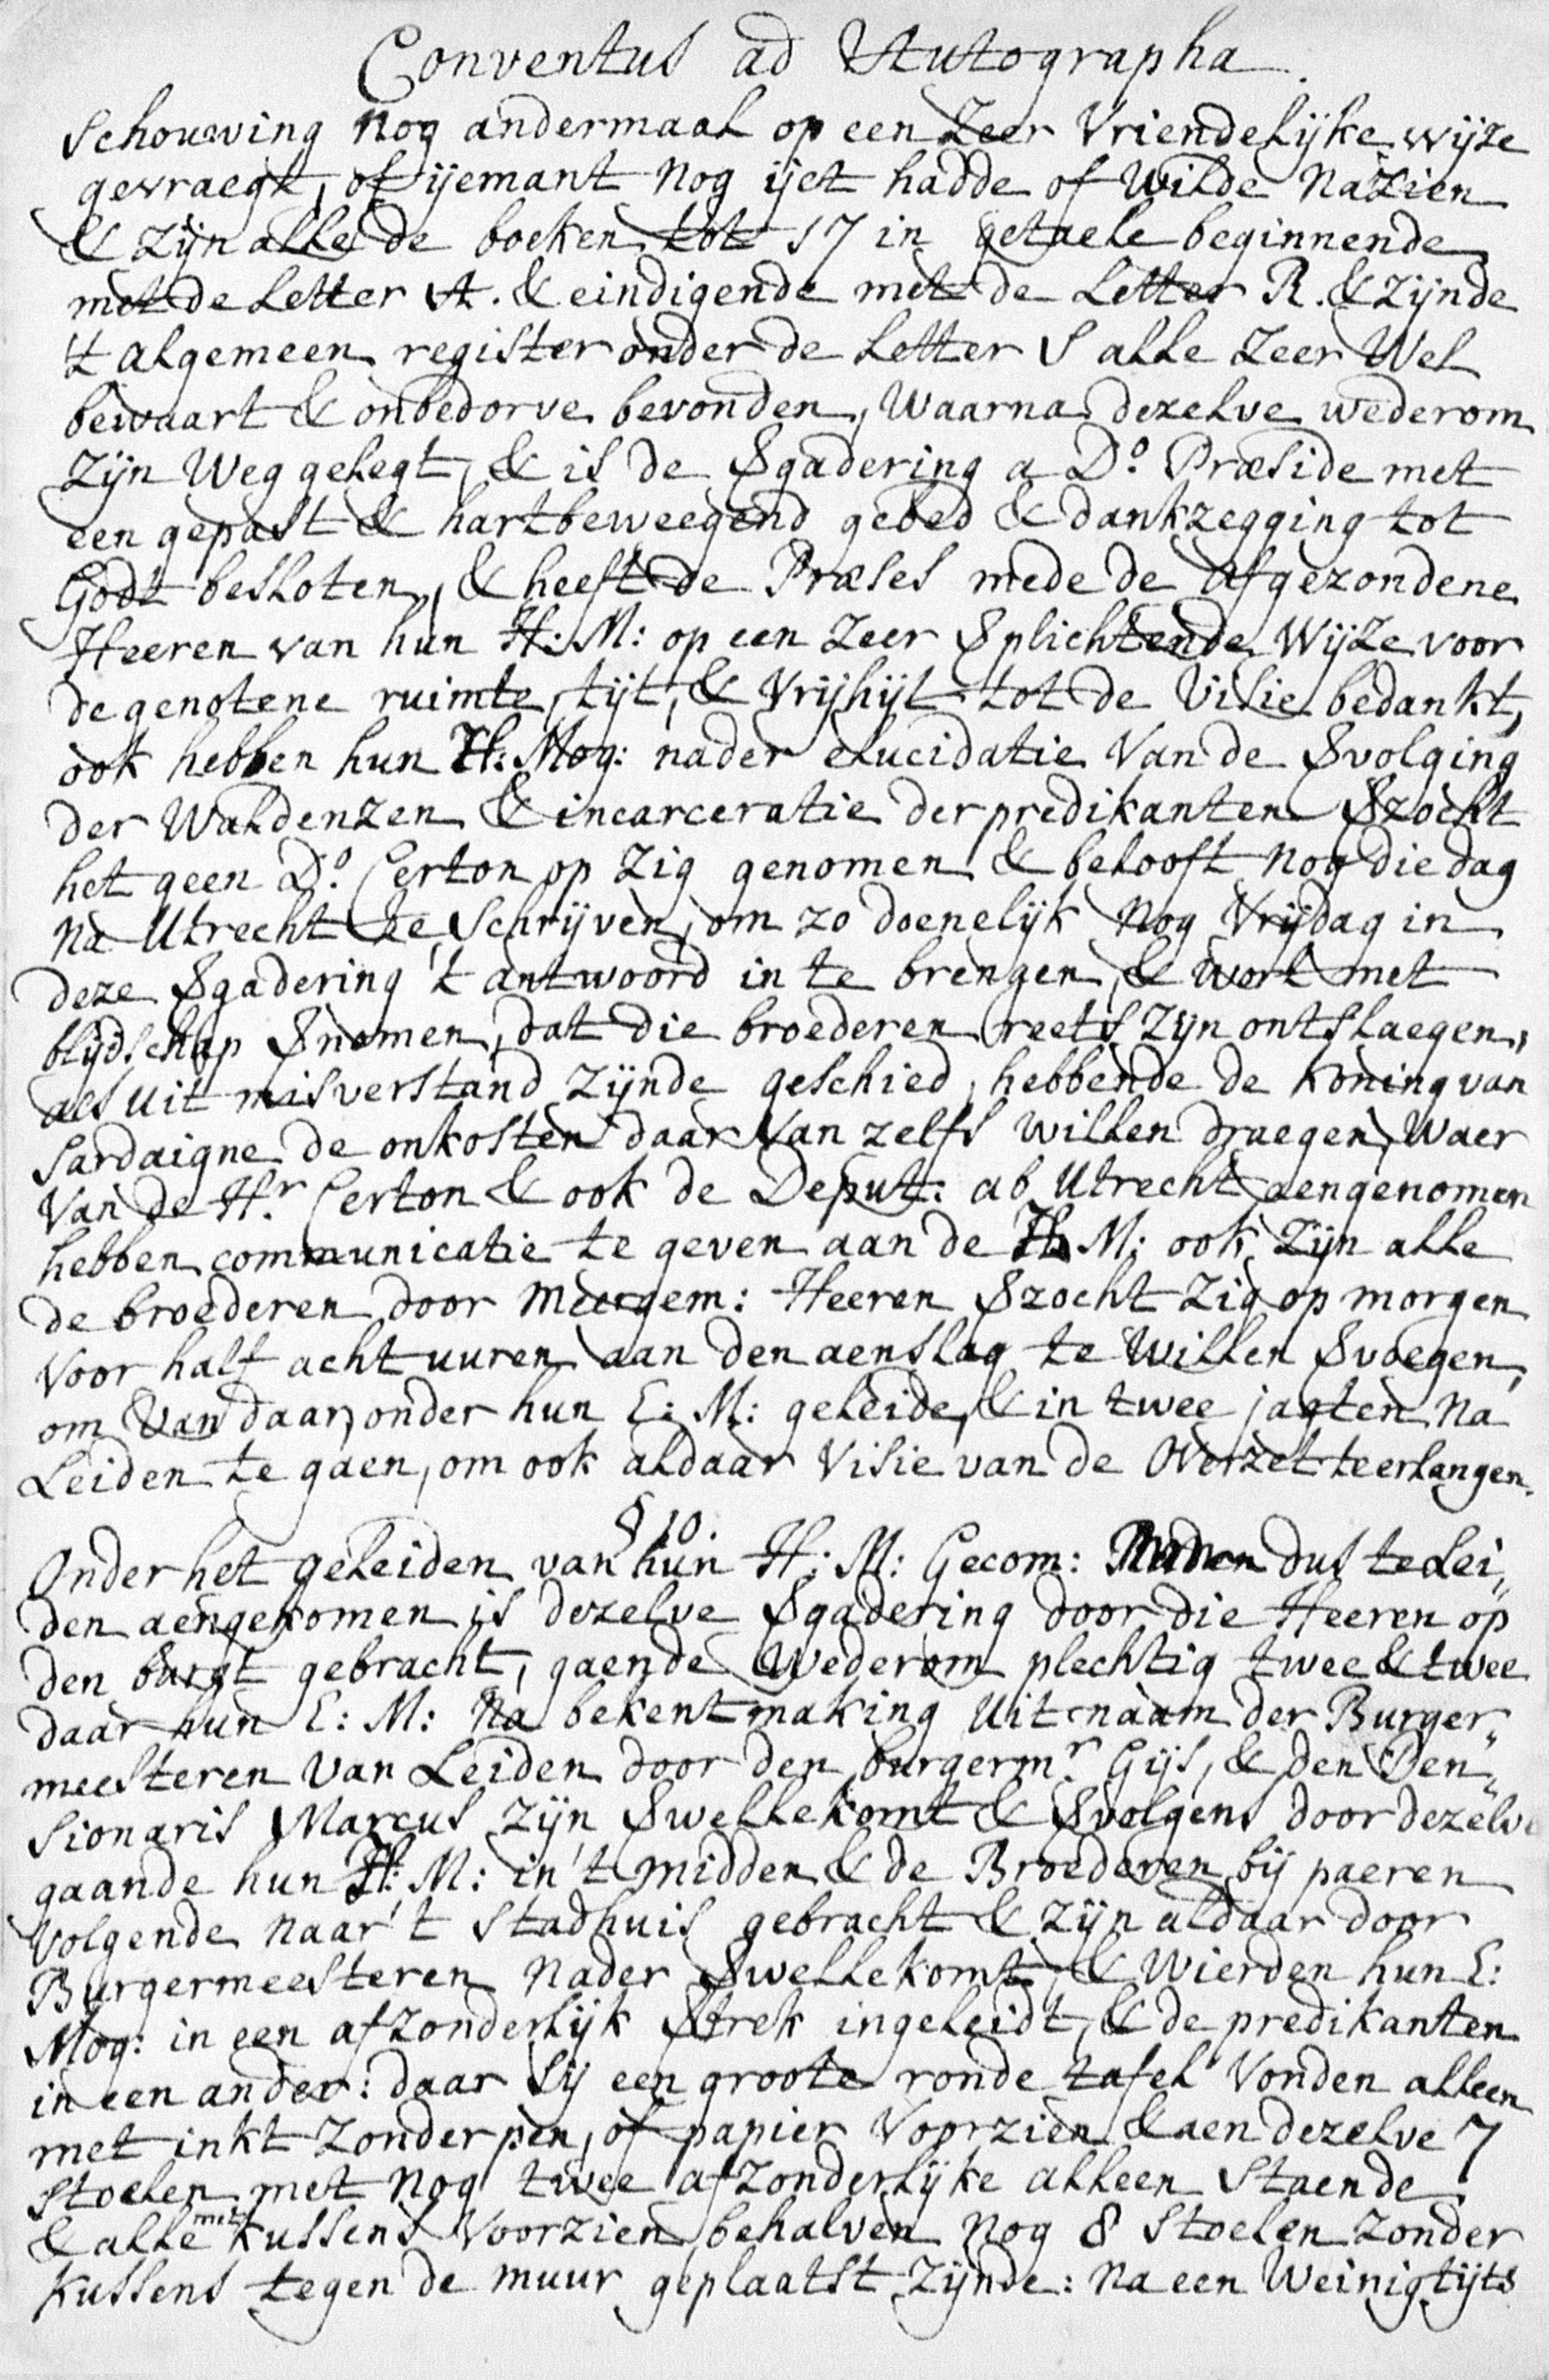 Conventus ad Autographa.
Schouwing nog andermaal op een zeer Vriendelijke wijze
gevraegt, of ijemant nog ijet hadde of Wilde nazien
& zijn alle de boeken tot 17 in getaele beginnende
met de Letter A. & eindigende met de Letter R. & zijnde
't algemeen register onder de Letter S alle zeer Wel
bewaart & onbedorve bevonden, Waarna dezelve wederom
zijn Weg gelegt, & is de Sgadering a D.º Præside met
een gepast & hartbeweegend gebed & dankzegging tot
Godt besloten, & heeft de Præses mede de afgezondene
Heeren van hun H: M: op een zeer Splichtende Wijze voor
de genotene ruimte, tijt, & Vrijhijt tot de Visie bedankt,
ook hebben hun H: Mog: nader elucidatie Van de Svolging
der Waldenzen & incarceratie der predikanten Szocht
het geen D.º Certon op zig genomen & belooft nog die dag
na Utrecht te Schrijven, om zo doenelijk nog Vrijdag in
deze Sgadering 't antwoord in te brengen, & wort met
blijdschap Snomen, dat die broederen reets zijn ontslaegen,
als uit misverstand zijnde geschied, hebbende de Koning van
Sardaigne de onkosten daar Van zelfs willen draegen, Waer
Van de H.r Certon & ook de Deput: ab Utrecht aengenomen
hebben communicatie te geven aan de H M: ook zijn alle
de broederen door Meergem: Heeren Szocht zig op morgen
voor half acht uuren aan den aenslag te willen Svoegen,
om Van daar, onder hun E: M: geleide, & in twee jagten na
Leiden te gaen, om ook aldaar Visie van de Overzet te erlangen.
§ 10.
Onder het geleiden van hun H: M: Gecom: dus te Lei„
den aengekomen is dezelve Sgadering door die Heeren op
den burgt gebracht, gaende Wederom plechtig twee & twee
daar hun E: M: Na bekentmaking Uit naam der Burger„
meesteren Van Leiden door den burgerm.r Gijs, & den Pen„
sionaris Marcus zijn Swellekomt & Svolgens door dezelve
gaande hun H: M: in 't midden & de Broederen bij paeren
volgende naar 't Stadhuis gebracht & zijn aldaar door
Burgermeesteren nader Swellekomt, & Wierden hun E:
Mog: in een afzonderlijk Strek ingeleidt, & de predikanten
in een ander: daar Sij een groote ronde tafel Vonden alleen
met inkt zonder pen, of papier Voorzien & aen dezelve 7
Stoelen met nog twee afzonderlijke alleen Staende
& alle met Kussens Voorzien, behalven nog 8 Stoelen zonder
Kussens tegen de muur geplaatst zijnde: na een Weinig tijts